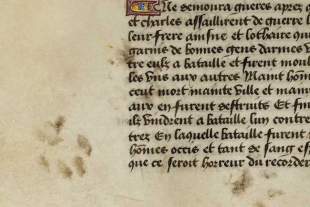 Ne demoura gueres apres q
et charles assaillirent de guerre l
leur frere ainsne et lothaire qui
garnis de bonnes gens darmes v
tre eulz a bataille et furent moul
les vns aux autres Maint hom
ceut mort mainte ville et man
aux en furent destruits Et fin
ilz vindrent a bataille lun contre
trez En laquelle bataille furent
hommes occis et tant de sang es
que ce seroit horreur du recorder